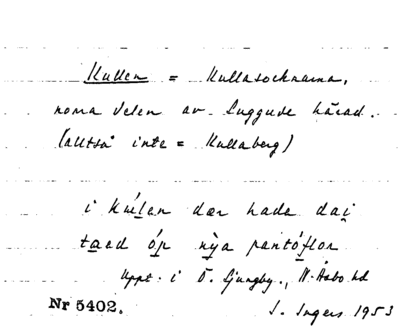 Kullen = Kullasocknarna,
norra delen av Luggude härad.
(alltså inte = Kullaberg)
i kúlen dær hade dai̯
taed óp nỳa pantóflor
Uppt. i Ö. Ljungby, N. Åsbo hd
Nr 5402. I. Ingers 1953